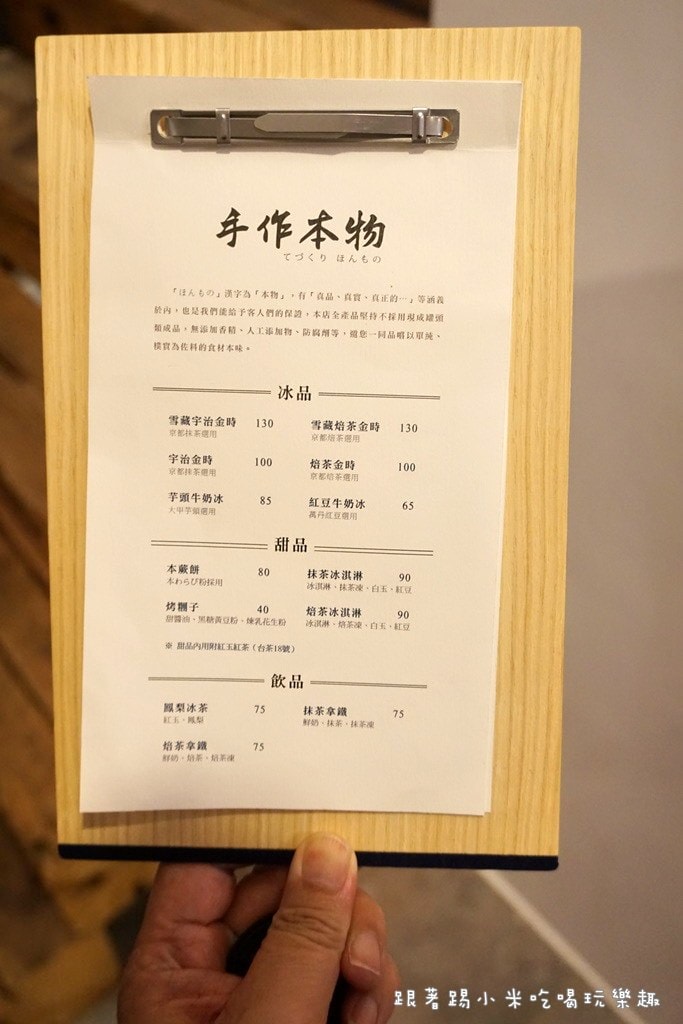 手作本物
てづくり ほんもの
「ほんもの」漢字為「本物」，有「真品、真實、真正的⋯」等涵義
於內，也是我們能給予客人們的保證，本店全產品堅持不採用現成罐頭
類成品，無添加香精、人工添加物、防腐劑等，邀您一同品嚐以單純、
樸實為佐料的食材本味。
冰品
雪藏宇治金時 130 雪藏焙茶金時 130
京都抹茶選用 京都焙茶選用
宇治金時 100 焙茶金時 100
京都抹茶選用 京都焙茶選用
芋頭牛奶冰 85 紅豆牛奶冰 65
大甲芋頭選用 萬丹紅豆選用
甜品
本蕨餅 80 抹茶冰淇淋 90
本わらび粉採用 冰淇淋、抹茶凍、白玉、紅豆
烤糰子 40 焙茶冰淇淋 90
甜醬油、黑糖黃豆粉、煉乳花生粉 冰淇淋、焙茶凍、白玉、紅豆
※ 甜品內用附紅玉紅茶（台茶18號）
飲品
鳳梨冰茶 75 抹茶拿鐵 75
紅玉、鳳梨 鮮奶、抹茶、抹茶凍
焙茶拿鐵 75
鮮奶、焙茶、焙茶凍
跟著踢小米吃喝玩樂趣